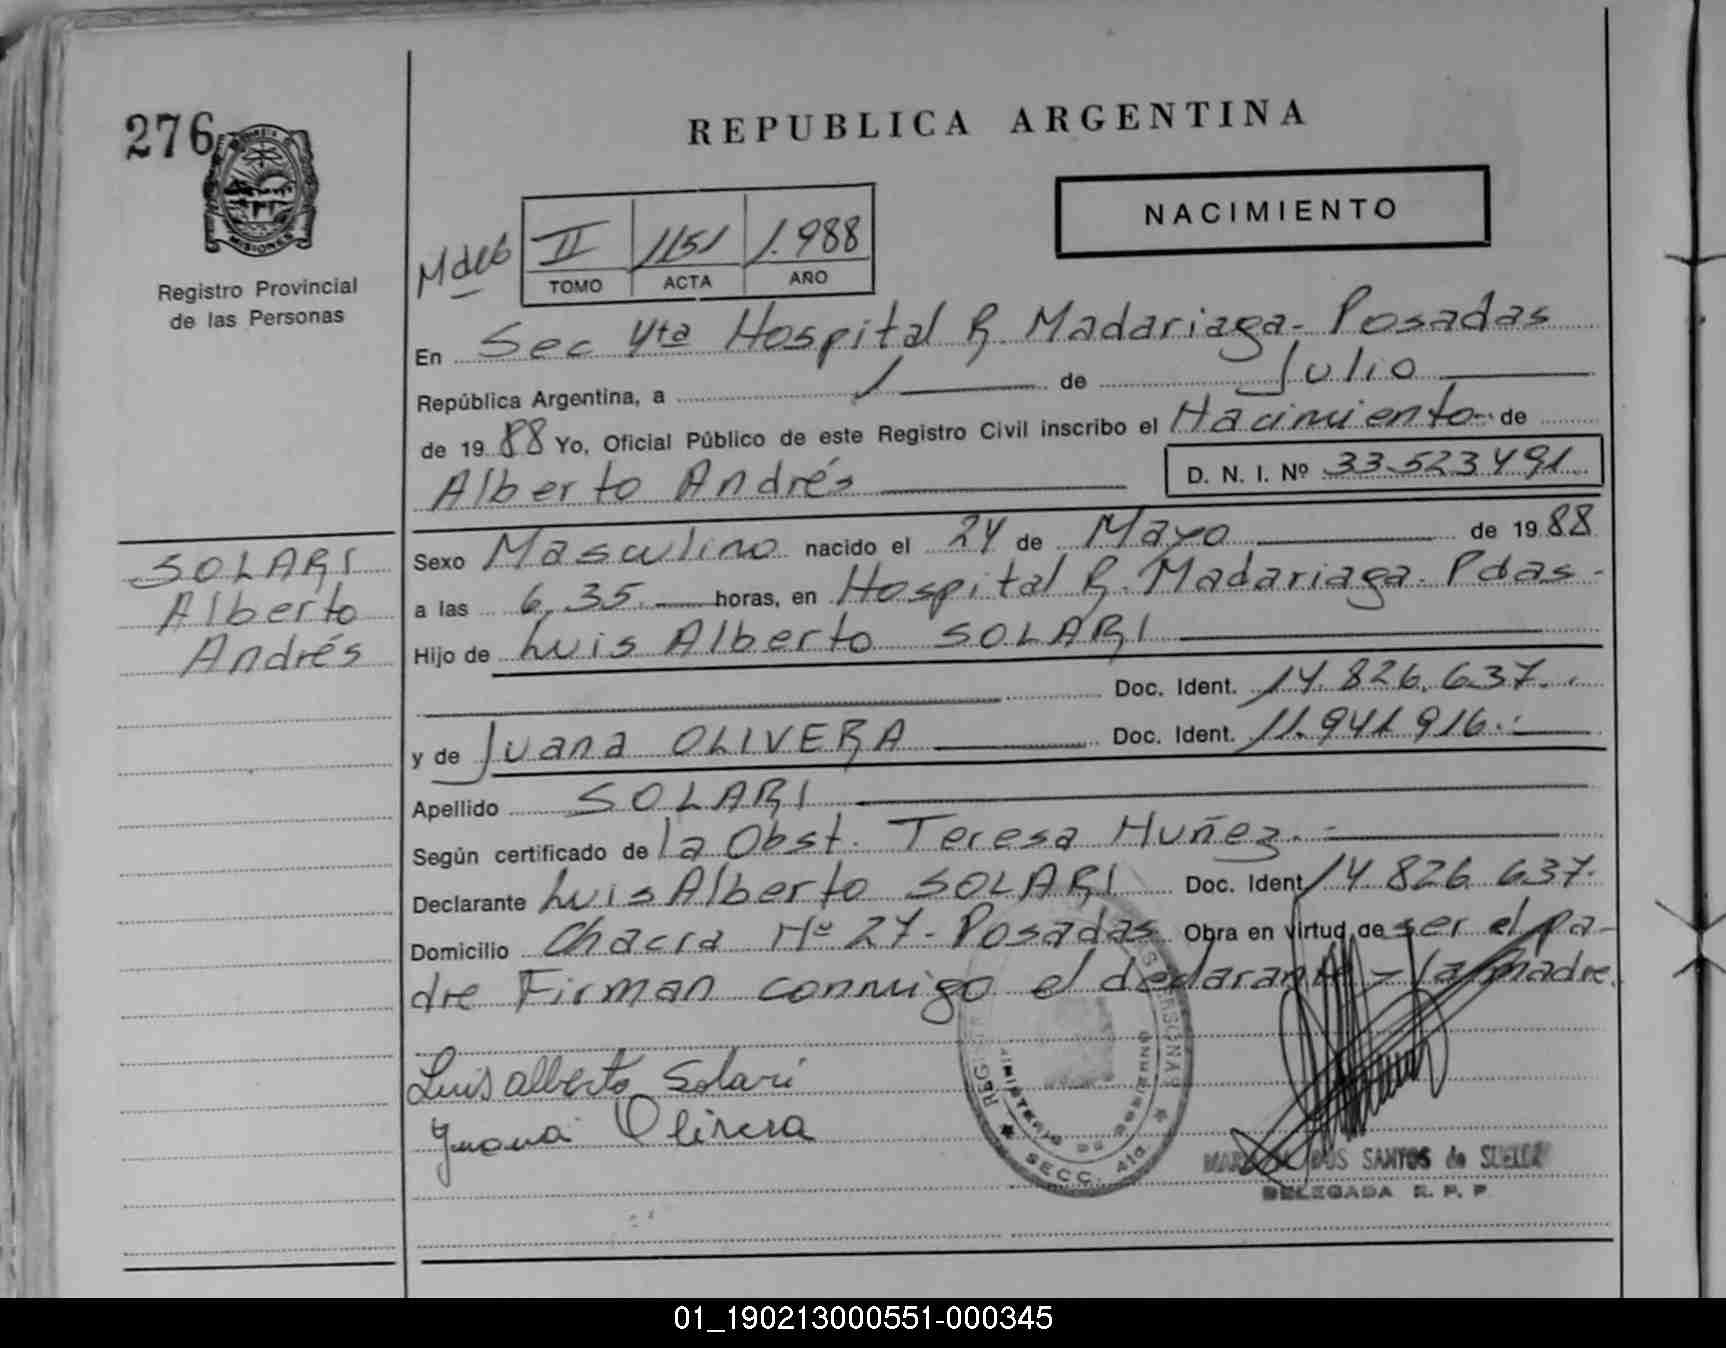 276
REPUBLICA ARGENTINA
NACIMIENTO
MISIONES
Registro Provincial
de las Personas
II 1151 1.988
TOMO ACTA AÑO
En Sec 4ta Hospital R. Madariaga - Posadas
República Argentina, a 1 de Julio
de 19 88 Yo, Oficial Público de este Registro Civil inscribo el Nacimiento de
Alberto Andrés D. N. I. Nº 33.523.491
SOLARI
Alberto
Andrés
Sexo Masculino nacido el 24 de Mayo de 19 88
a las 6,35 horas, en Hospital R. Madariaga. Pdas -
Hijo de Luis Alberto SOLARI
Doc. Ident. 14.826.637.
y de Juana OLIVERA Doc. Ident. 11.941.916.
Apellido SOLARI
Según certificado de la Obst. Teresa Nuñez.
Declarante Luis Alberto SOLARI Doc. Ident 14.826.637.
Domicilio Chacra Nº 27 - Posadas Obra en virtud de ser el pa-
dre Firman conmigo el declarante - la madre.
Luis alberto Solari
Juana Olivera
MINISTERIO DE GOBIERNO
SECC. 4ta
DOS SANTOS de
DELEGADA R. P. P.
01_190213000551-000345